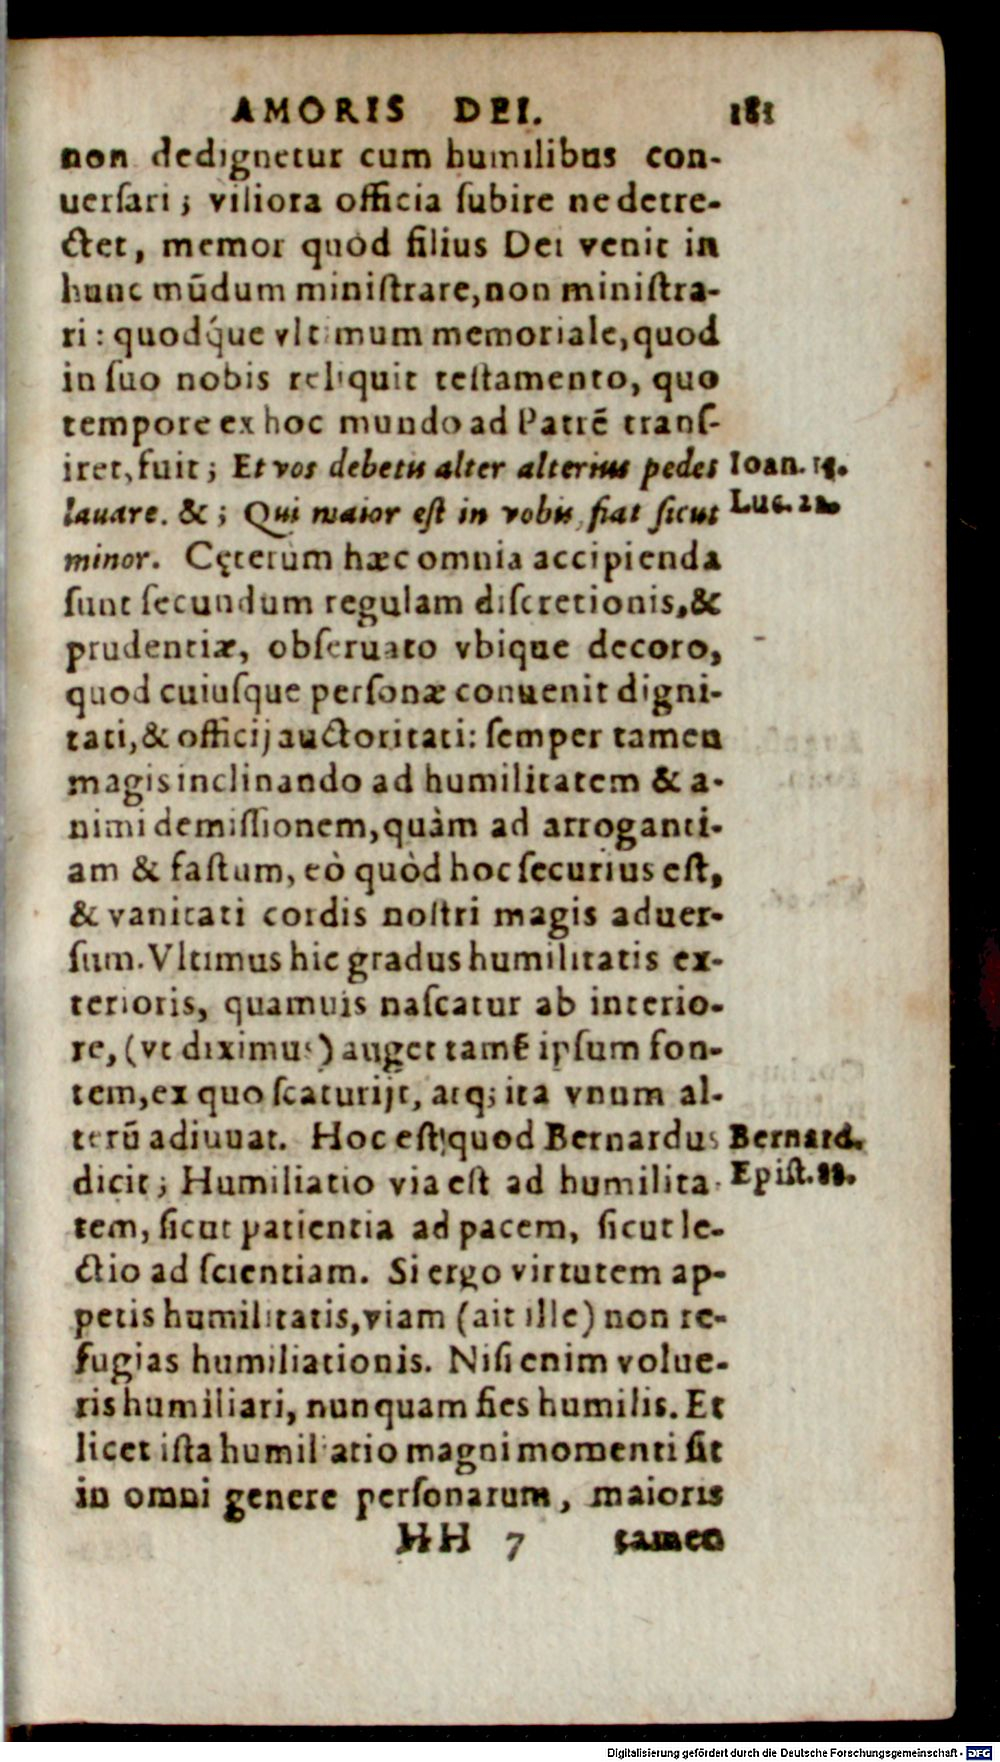 AMORIS DEI. 181
non dedignetur cum humilibus con-
uerſari; viliora officia ſubire ne detre-
ctet, memor quòd filius Dei venit in
hunc mūdum miniſtrare, non miniſtra-
ri: quodq́ue vltimum memoriale, quod
in ſuo nobis reliquit teſtamento, quo
tempore ex hoc mundo ad Patrē tranſ-
iret, fuit; Et vos debetis alter alterius pedes Ioan.
lauare. &; Qui maior eſt in vobis, fiat ſicut Luc. 22.
minor. Cęterùm hæc omnia accipienda
ſunt ſecundum regulam diſcretionis, &
prudentiæ, obſeruato vbique decoro,
quod cuiuſque perſonæ conuenit digni-
tati, & officij auctoritati: ſemper tamen
magis inclinando ad humilitatem & a-
nimi demiſſionem, quàm ad arroganti-
am & faſtum, eò quòd hoc ſecurius eſt,
& vanitati cordis noſtri magis aduer-
ſum. Vltimus hic gradus humilitatis ex-
terioris, quamuis naſcatur ab interio-
re, (vt diximus) auget tamē ipſum fon-
tem, ex quo ſcaturijt, atq; ita vnum al-
terū adiuuat. Hoc eſt quod Bernardus Bernard.
dicit; Humiliatio via eſt ad humilita- Epiſt.
tem, ſicut patientia ad pacem, ſicut le-
ctio ad ſcientiam. Si ergo virtutem ap-
petis humilitatis, viam (ait ille) non re-
fugias humiliationis. Niſi enim volue-
ris humiliari, nunquam fies humilis. Et
licet iſta humiliatio magni momenti ſit
in omni genere perſonarum, maioris
HH 7 tamen
Digitalisierung gefördert durch die Deutsche Forschungsgemeinschaft - DFG